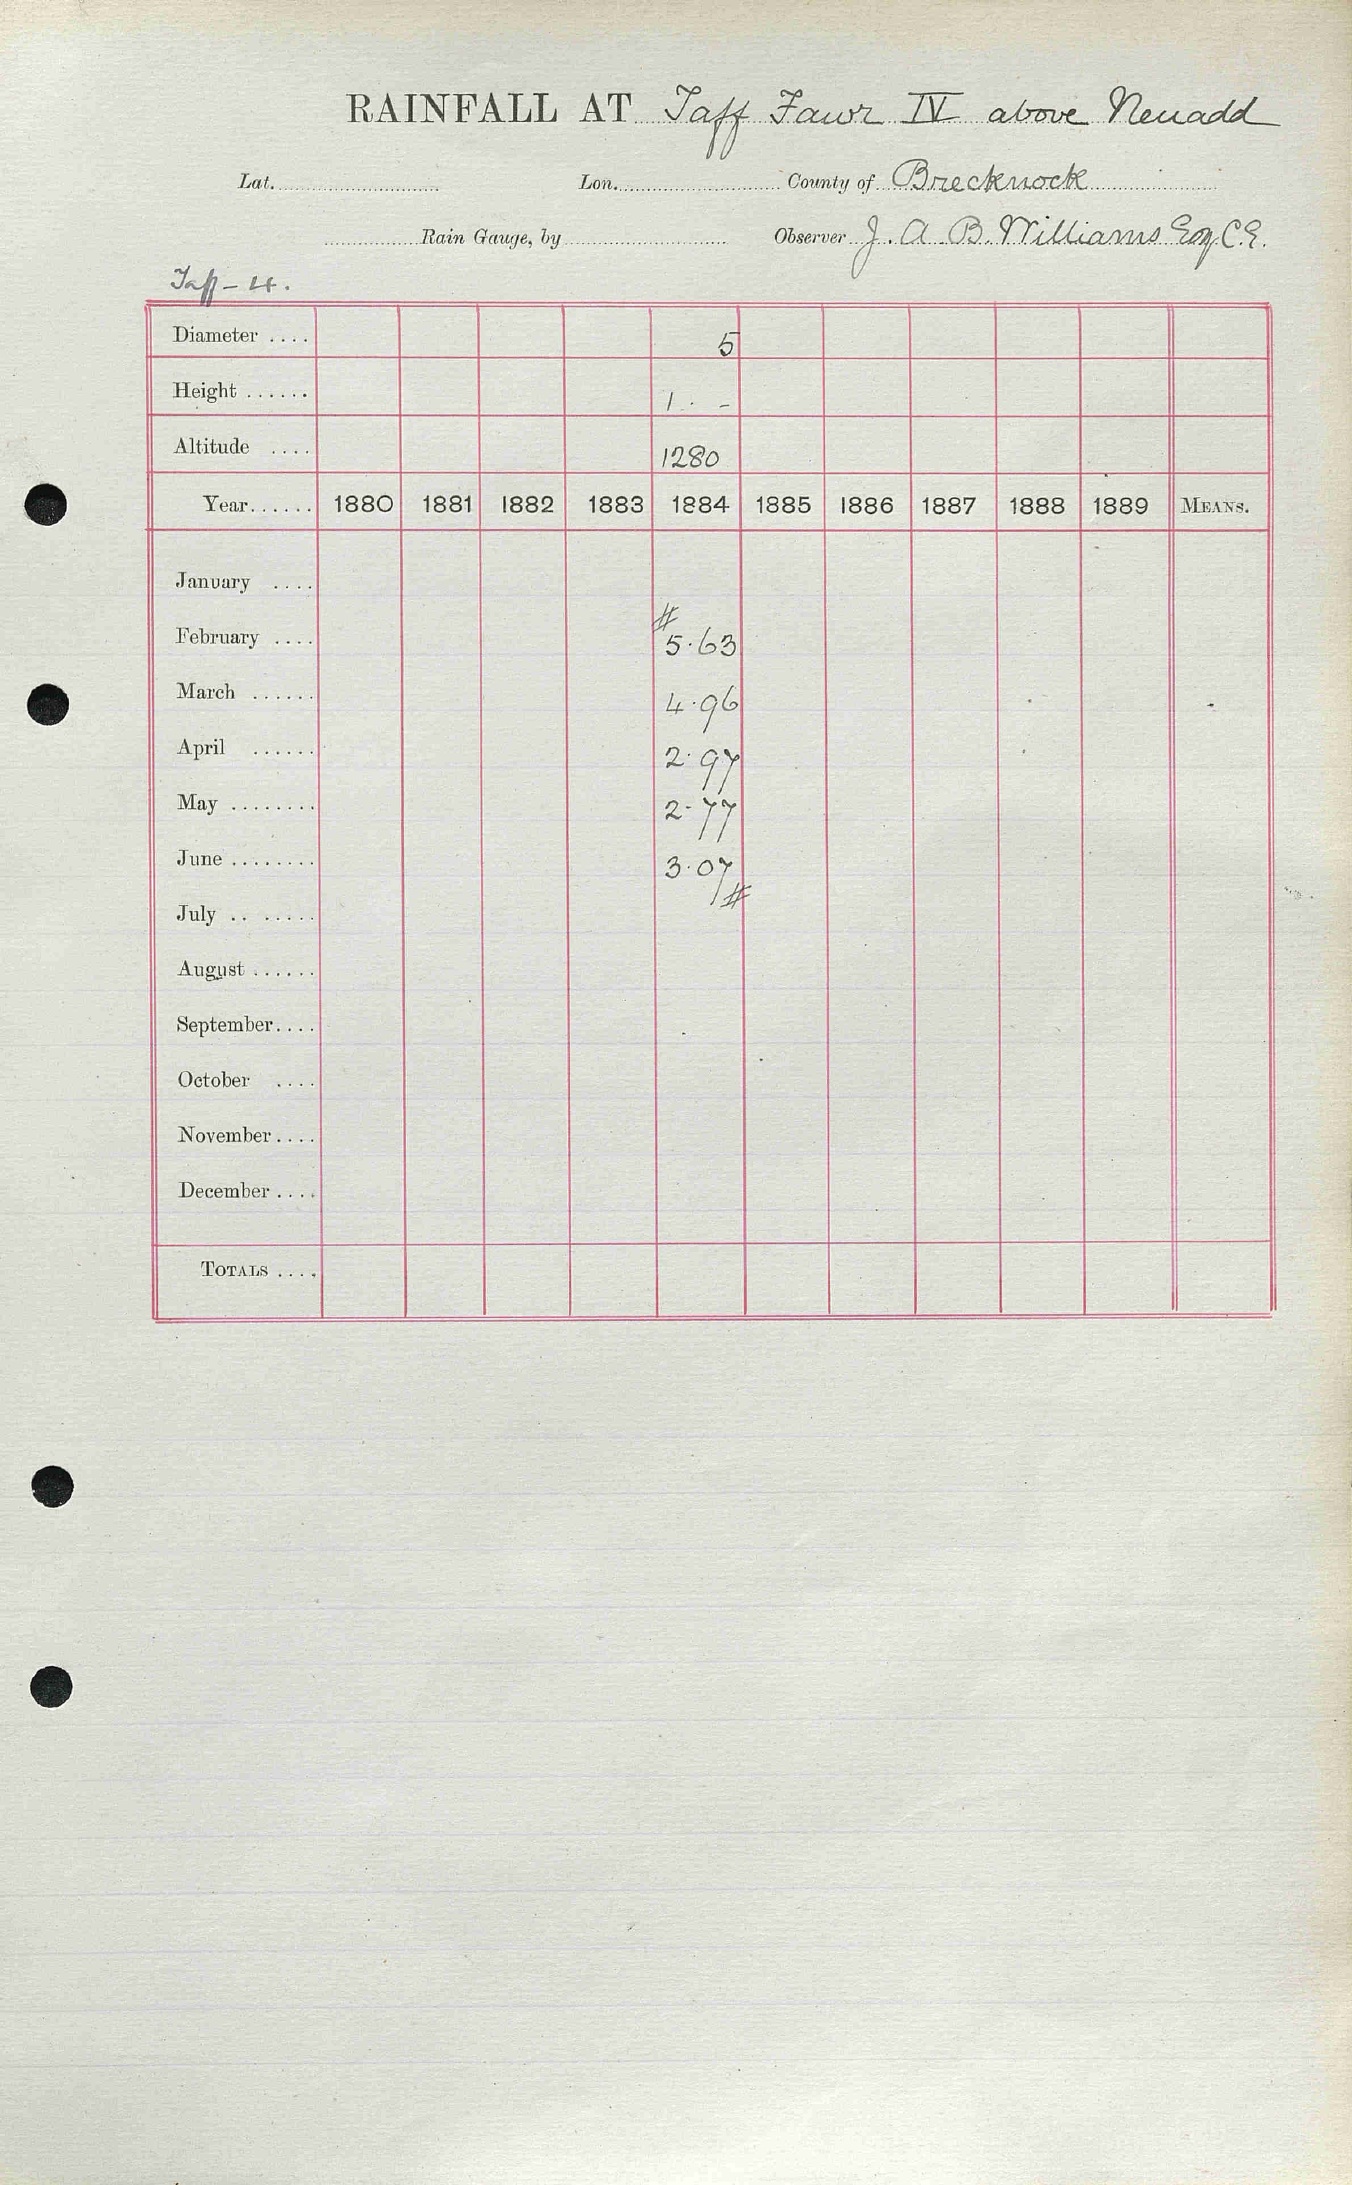 RAINFALL AT Taff Fawr IV above Neuadd
Lat. Lon. County of Brecknock
Rain Gauge, by Observer J. A B. Williams Esq C.E.
Taff - 4.
Diameter .... 5
Height ...... 1 . -
Altitude .... 1280
Year...... 1880 1881 1882 1883 1884 1885 1886 1887 1888 1889 MEANS.
January ....
#
February .... 5.63
March ...... 4.96
April ...... 2.97
May ........ 2.77
June ........ 3.07
#
July .. .....
August ......
September....
October ....
November....
December ....
TOTALS ....